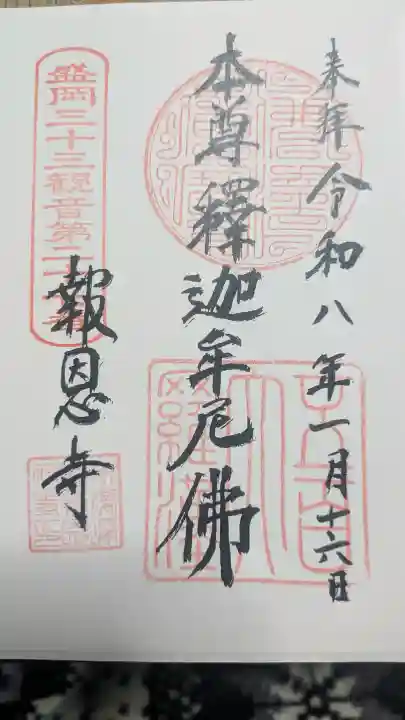 奉拝 令和八年一月十六日
本尊釋迦牟尼佛
盛岡三十三観音第二十
報恩寺
五百
大
羅漢